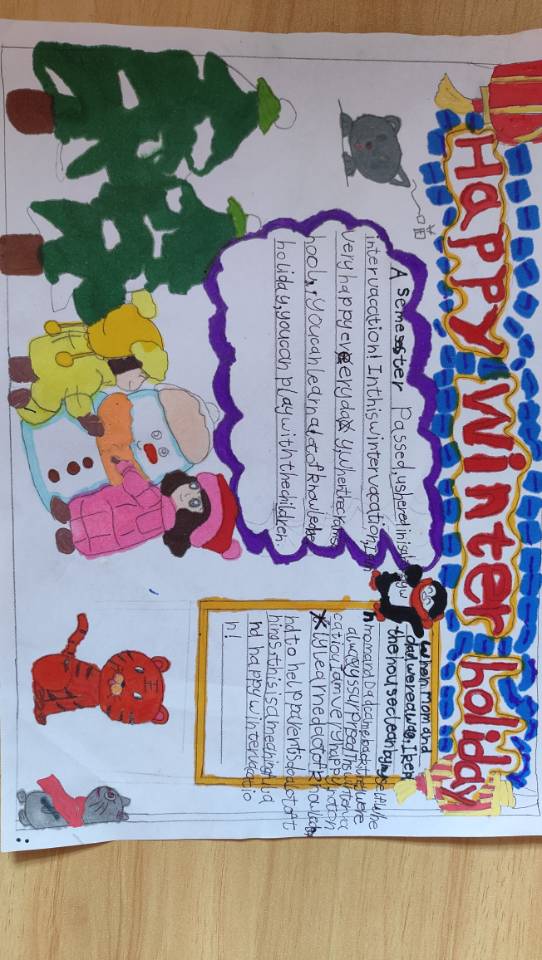 Happy Winter holiday
A semester passed, ushered in is a happy w
intervacation! In this winter vacation, I am
very happy every day, when the classs
hool, you can learn a lot of knowledge
holiday, you can play with the children.
When mom and
dad were away, I kep
the house clean by myself. Whe
n mom and dad came back they were
always surprised. This winter va
cation, I am very happy, not on
ly learned a lot of knowledge,
nd to help parents do a lot of t
hings, this is a meaningful a
nd happy winter vacatio
n!